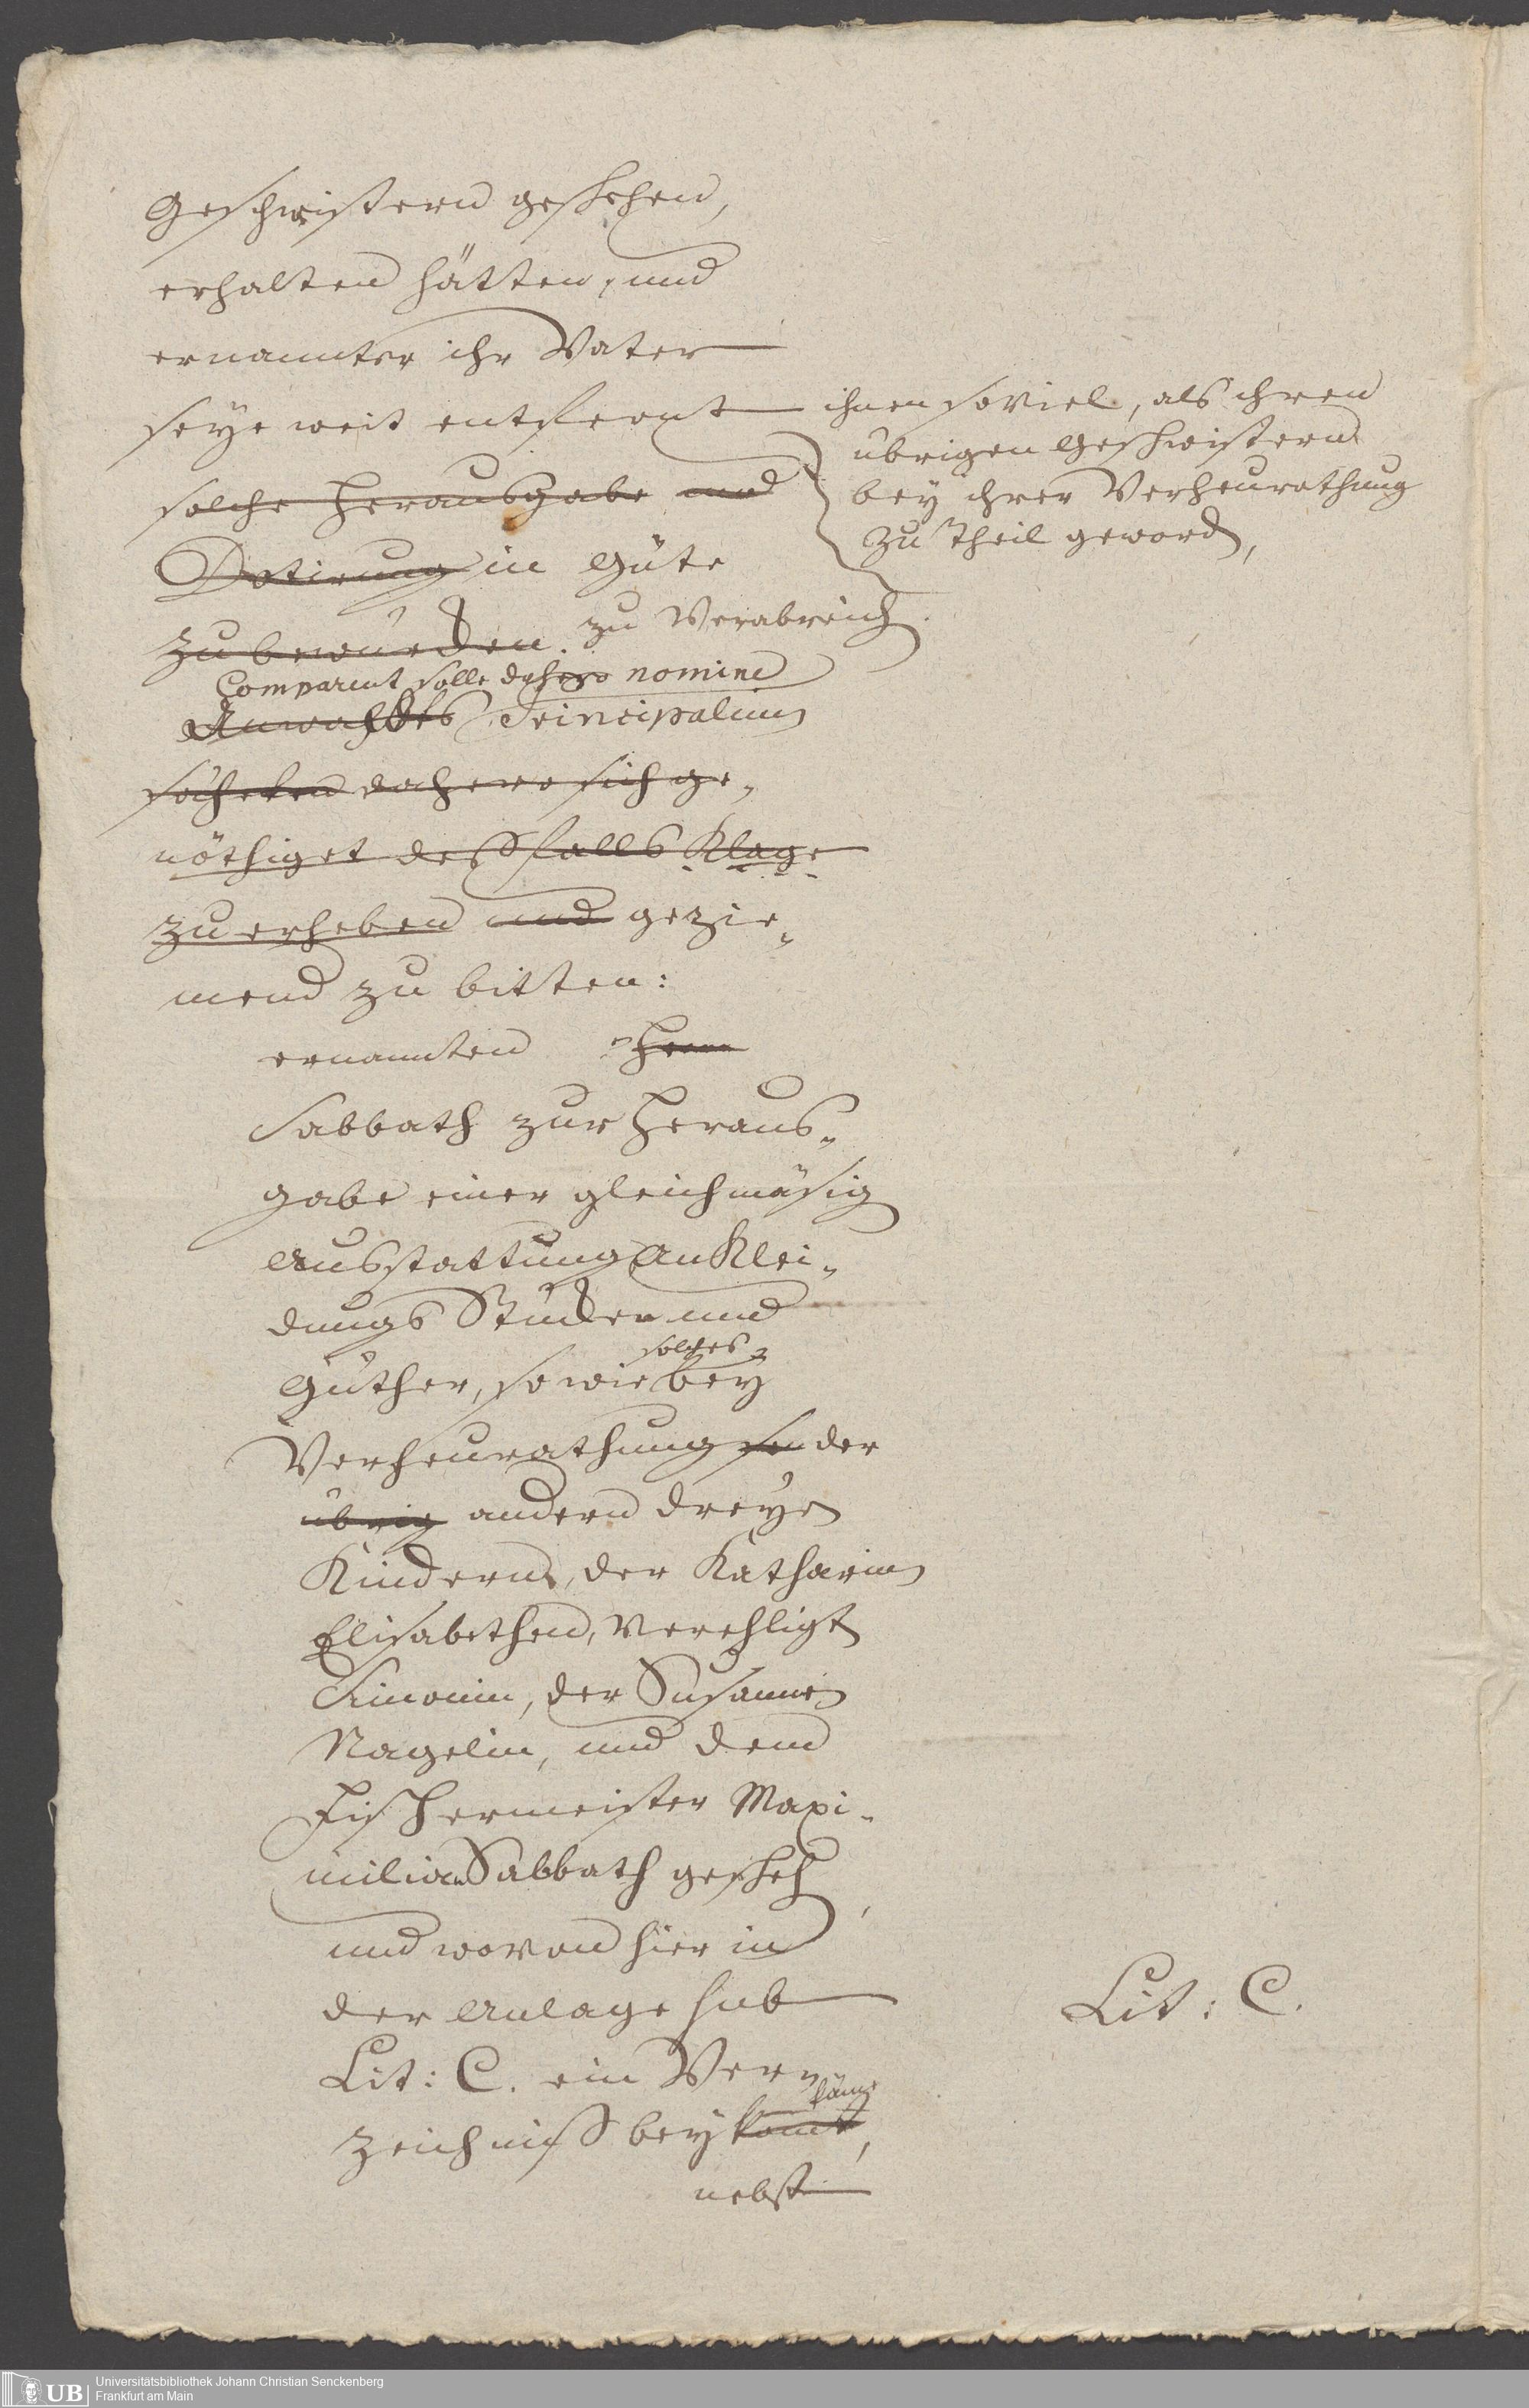 Geschwistern geschehen,
erhalten hätten, und
ernannter ihr Vater
seye weit entfernt
ihnen soviel, als ihren
übrigen Geschwistern
bey ihrer Verheurathung
zu Theil geword,
solche Herausgabe und
Dotirung in Güte
zu bewürcken. zu Verabreich.
Comparent solle dahero nomine
Anwaldts Principalium
säheten dahero sich ge-
nöthiget deßfalls Klage
zu erheben und gezie-
mend zu bitten:
ernannten Herrn
Sabbath zur Heraus-
gabe einer gleichmäsig
Ausstattung an Klei-
dungs Stücken und
solches
Güther, so wie bey
Verheurathung der
übrig andern dreyen
Kindern, der Katharin
Elisabethen, Verehligt
Simonin, der Susannen
Nagelin, und dem
Fischermeister Maxi-
milian Sabbath gescheh,
und wovon hier in
der Anlage sub
Lit: C.
Lit: C. ein Ver-
käme
zeichniß beykomt,
nebst
Universitätsbibliothek Johann Christian Senckenberg
Frankfurt am Main
UB